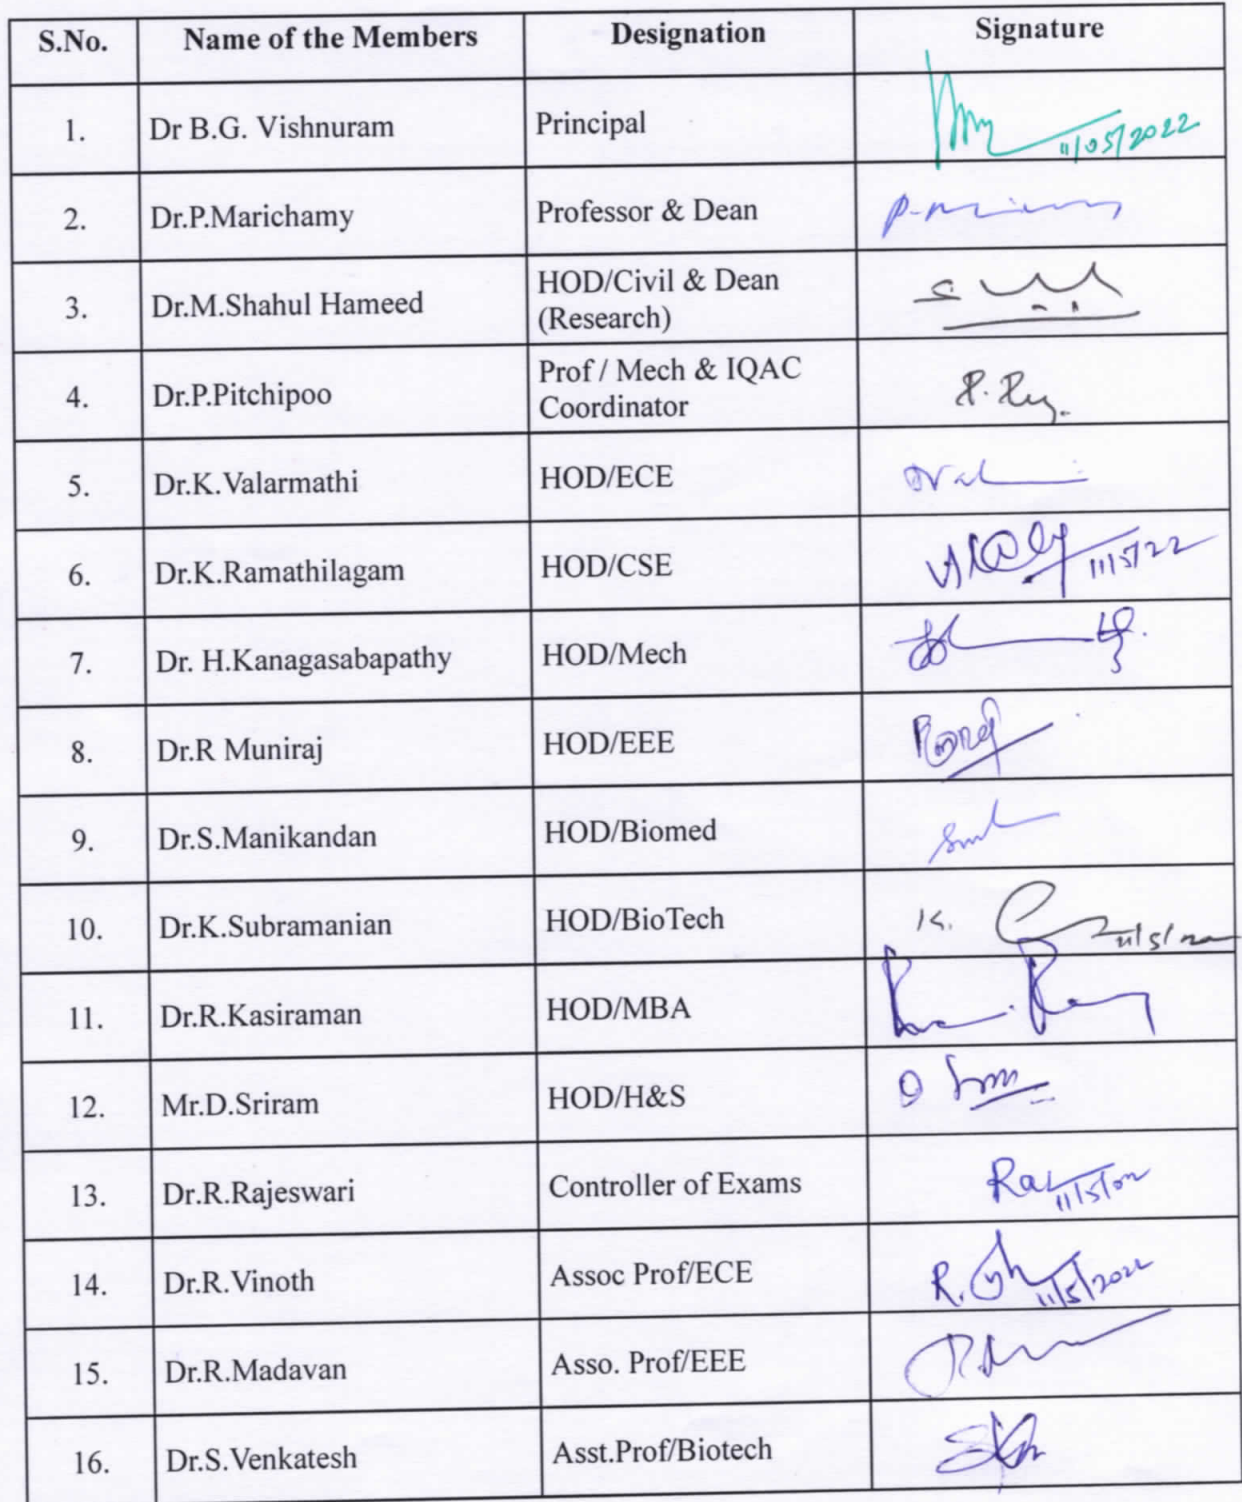 S.No. Name of the Members Designation Signature
1. Dr B.G. Vishnuram Principal 11/05/2022
2. Dr.P.Marichamy Professor & Dean
3. Dr.M.Shahul Hameed HOD/Civil & Dean
(Research)
4. Dr.P.Pitchipoo Prof / Mech & IQAC
Coordinator
5. Dr.K.Valarmathi HOD/ECE
6. Dr.K.Ramathilagam HOD/CSE 11/5/22
7. Dr. H.Kanagasabapathy HOD/Mech
8. Dr.R Muniraj HOD/EEE
9. Dr.S.Manikandan HOD/Biomed
10. Dr.K.Subramanian HOD/BioTech K.
11. Dr.R.Kasiraman HOD/MBA
12. Mr.D.Sriram HOD/H&S
13. Dr.R.Rajeswari Controller of Exams
14. Dr.R.Vinoth Assoc Prof/ECE 11/5/2022
15. Dr.R.Madavan Asso. Prof/EEE
16. Dr.S.Venkatesh Asst.Prof/Biotech